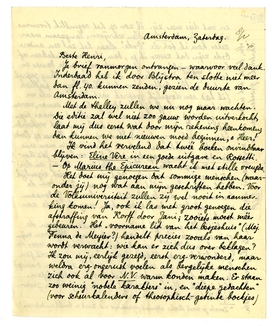 Amsterdam, Zaterdag.
Beste Henri,
Je brief vanmorgen ontvangen - waarvoor veel dank.
Inderdaad heb ik door Blijstra ten slotte niet meer
dan fl. 40. kunnen zenden, gezien de duurte van
Amsterdam.
Met de Shelley zullen we nu nog maar wachten.
Die editie zal wel niet zoo gauw worden uitverkocht,
laat mij dus eerst wat door mijn rekening heenkomen
dan kunnen we met nieuwen moed beginnen, "Heer!"
Ik vind het vervelend dat twee boeken onvindbaar
blijven: Elene Vere in een goede uitgave en Rossetti.
Op Marius the Epicurean wacht ik met stille vreugde.
Het doet mij genoegen dat sommige menschen (waar-
onder jij) nog wat aan mijn geschriften hebben. Voor
de Volksuniversiteit zullen zij wel nooit in aanmer-
king komen! Ja, ook ik las met groot genoegen de
afstraffing van Korff door Jan; zooiets moest meer
gebeuren. Het voorname lid van het leesgezelschap (Mej.
Finna de Meyier?) handelt precies zooals van haar
wordt verwacht: wie kan er zich dus over beklagen?
Ik zou mij, eerlijk gezegd, eerder erg verwonderd, maar
weldra erg onzeker voelen als dergelijke menschen
zich ook al voor M.V. warm konden maken. Er staan
zoo weinig "nobele karakters" in, en "diepe gedachten"
(voor scheurkalenders of theosophisch-getinte boekjes)